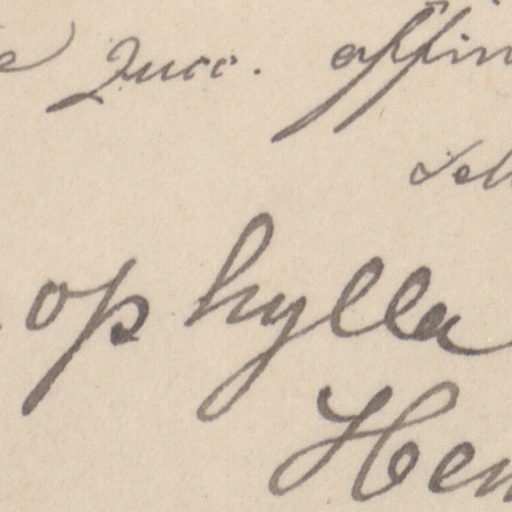 e Zucc. affin
Seh
ophylla
Hen